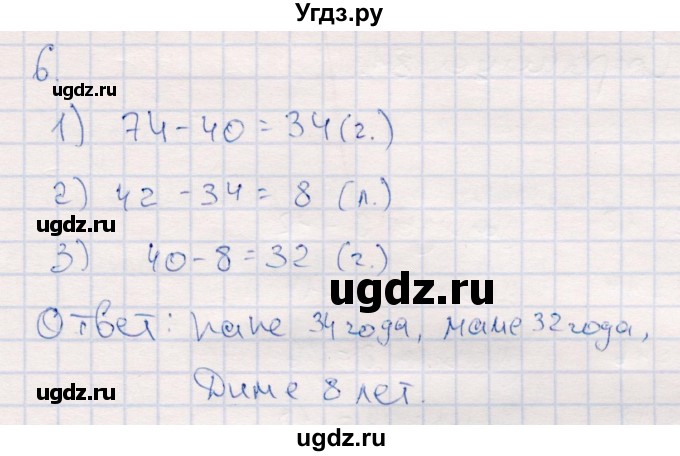 Угдз.ру
6.
ugdz.ru
1) 74-40=34(г.)
2) 42-34= 8 (л.)
ugdz.ru
3) 40-8=32 (г.)
ugdz.ru
Ответ: папе 34 года, маме 32 года,
ugdz.ru
Диме 8 лет.
ugdz.ru